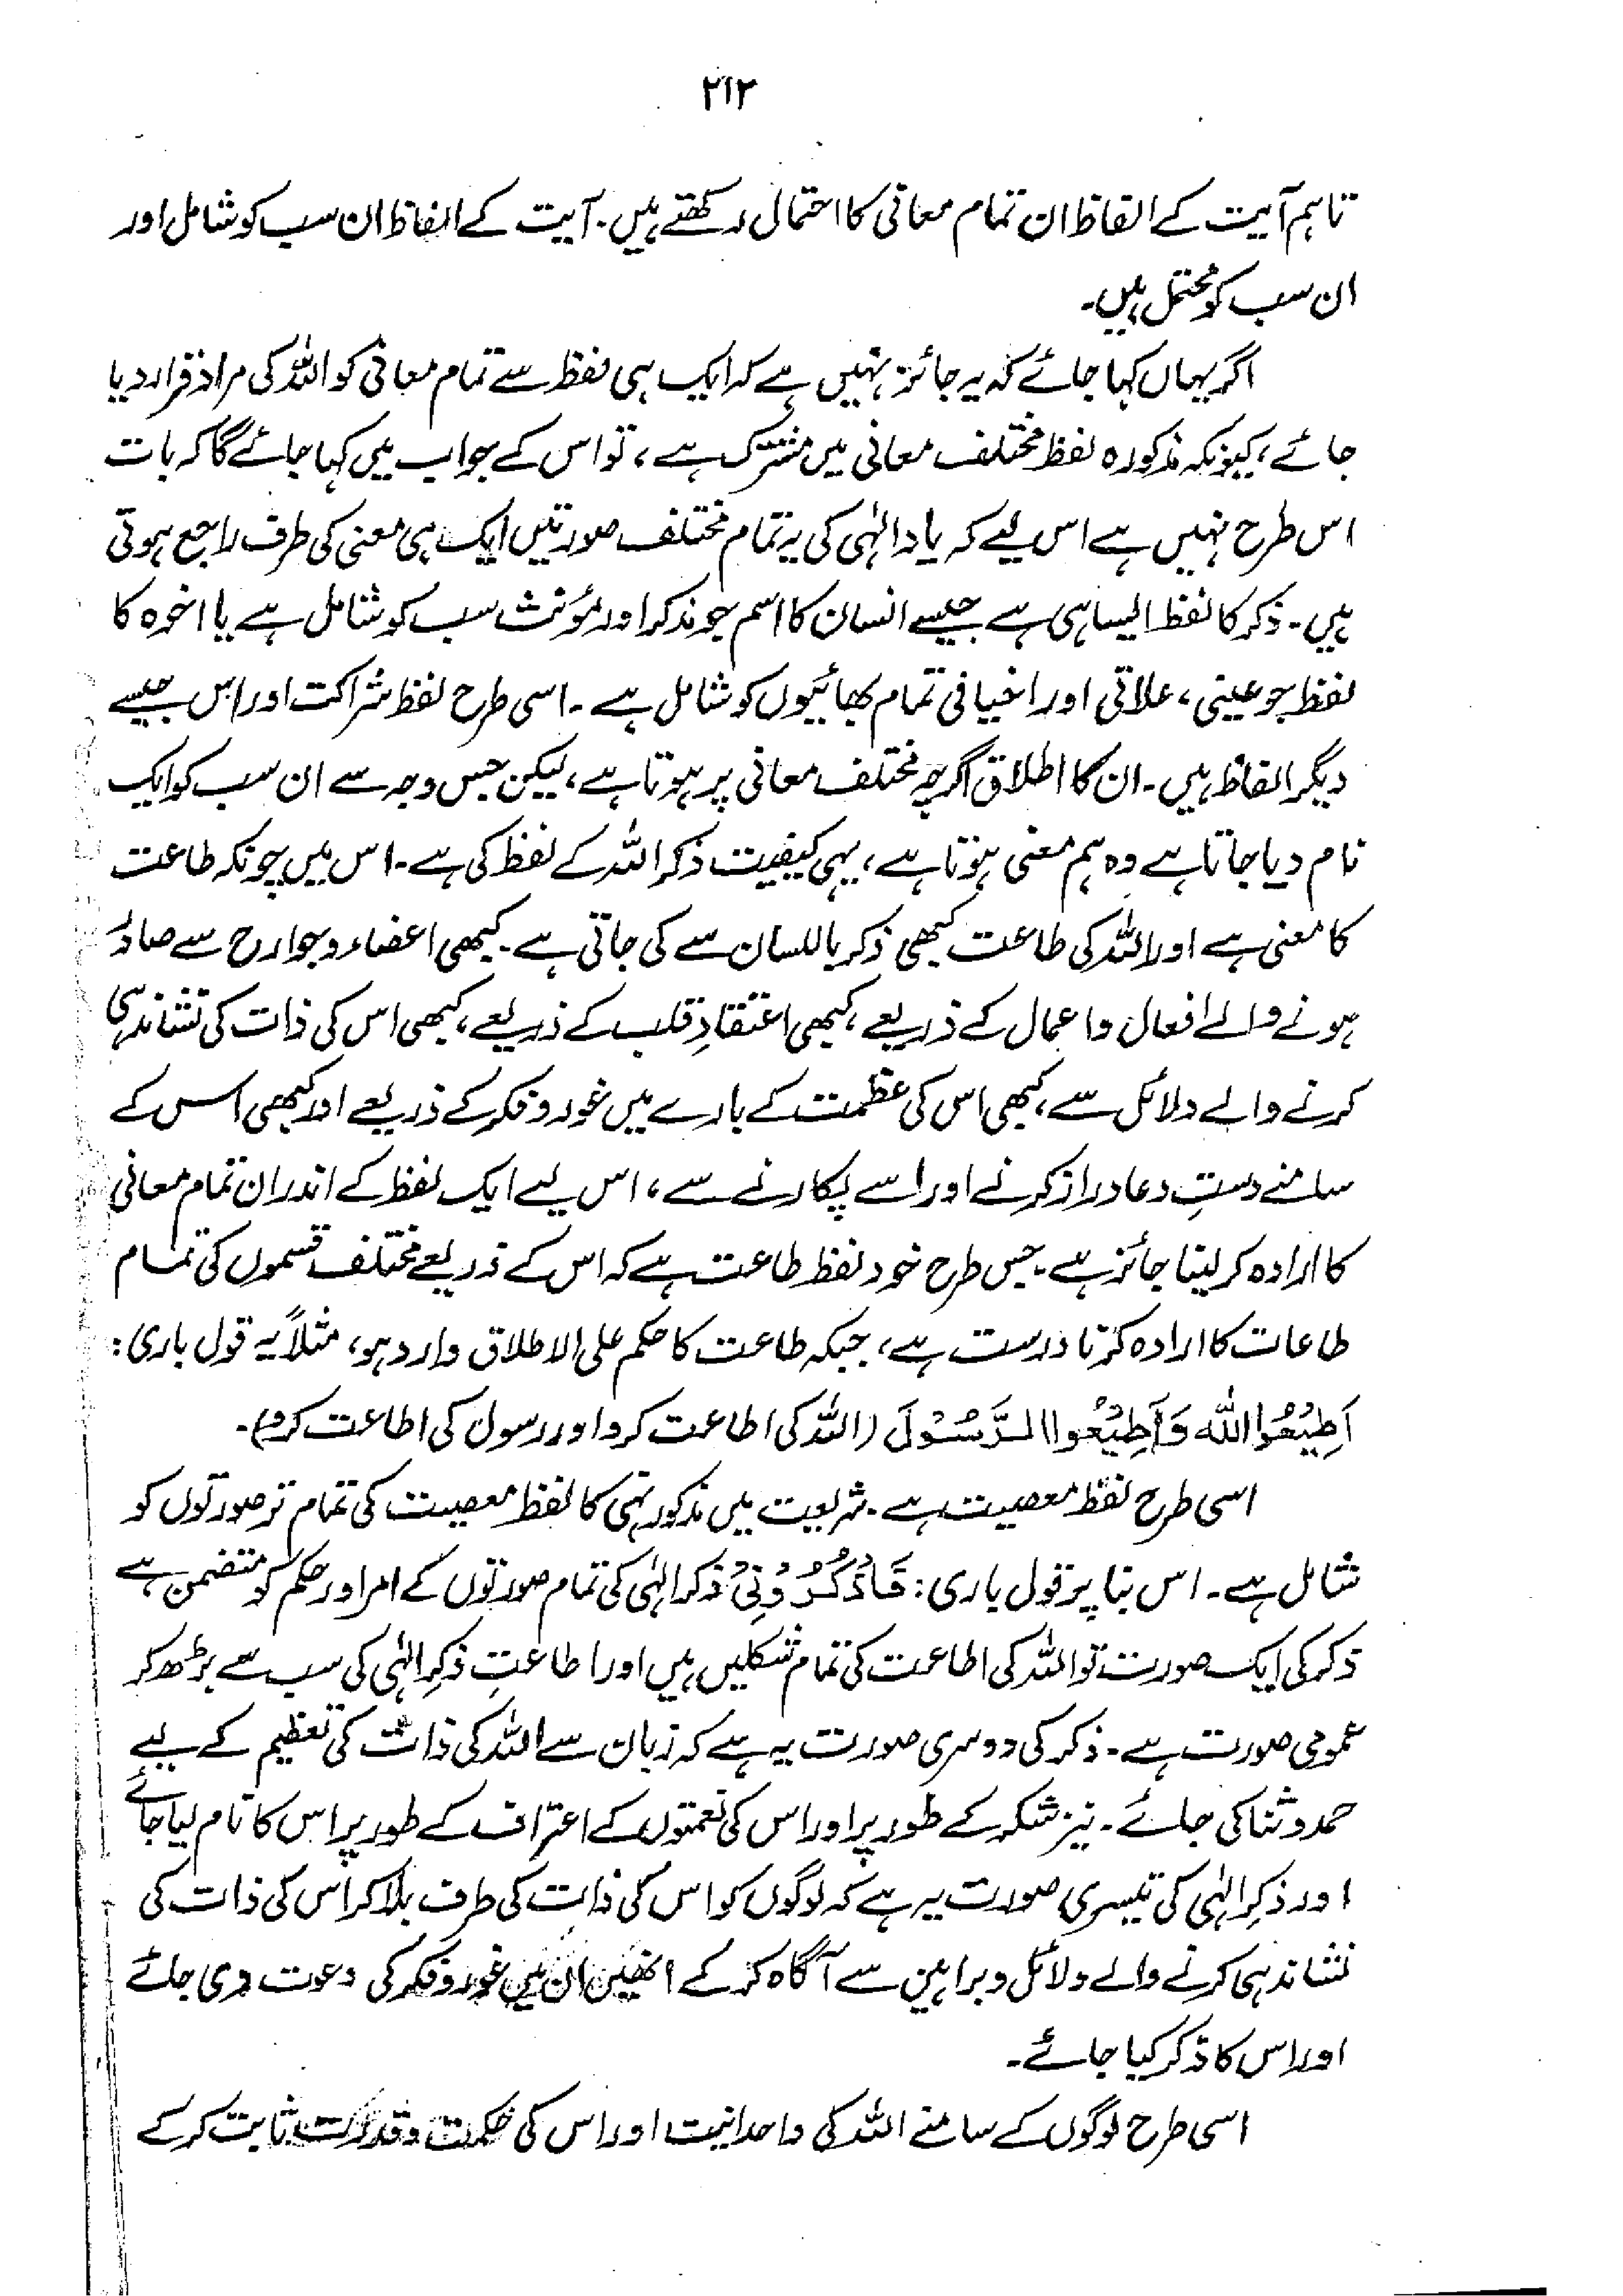 ۲۱۲
تاہم آیت کے الفاظ ان تمام معانی کا احتمال رکھتے ہیں۔ آیت کے الفاظ ان سب کو شامل اور
ان سب کو محتمل ہیں۔
اگر یہاں کہا جائے کہ یہ جائز نہیں ہے کہ ایک ہی لفظ سے تمام معانی کو اللہ کی مراد قرار دیا
جائے، کیونکہ مذکورہ لفظ مختلف معانی میں مشترک ہے، تو اس کے جواب میں کہا جائے گا کہ بات
اس طرح نہیں ہے اس لیے کہ یاد الٰہی کی یہ تمام مختلف صورتیں ایک ہی معنی کی طرف راجع ہوتی
ہیں۔ ذکر کا لفظ ایسا ہی ہے جیسے انسان کا اسم جو مذکر اور مؤنث سب کو شامل ہے یا اخوہ کا
لفظ جو عینی، علاتی اور اخیافی تمام بھائیوں کو شامل ہے۔ اسی طرح لفظ شراکت اور اس جیسے
دیگر الفاظ ہیں۔ ان کا اطلاق اگرچہ مختلف معانی پر ہوتا ہے، لیکن جس وجہ سے ان سب کو ایک
نام دیا جاتا ہے وہ ہم معنی ہوتا ہے، یہی کیفیت ذکر اللہ کے لفظ کی ہے۔ اس میں چونکہ طاعت
کا معنی ہے اور اللہ کی طاعت کبھی ذکر باللسان سے کی جاتی ہے۔ کبھی اعضاء و جوارح سے صادر
ہونے والے افعال و اعمال کے ذریعے، کبھی اعتقادِ قلب کے ذریعے، کبھی اس کی ذات کی نشاندہی
کرنے والے دلائل سے، کبھی اس کی عظمت کے بارے میں غور و فکر کے ذریعے اور کبھی اس کے
سامنے دستِ دعا دراز کرنے اور اسے پکارنے سے، اس لیے ایک لفظ کے اندر ان تمام معانی
کا ارادہ کر لینا جائز ہے۔ جس طرح خود لفظ طاعت ہے کہ اس کے ذریعے مختلف قسموں کی تمام
طاعات کا ارادہ کرنا درست ہے، جبکہ طاعت کا حکم علی الاطلاق وارد ہو، مثلاً یہ قول باری:
اَطِیْعُوا اللہ وَاَطِیْعُوا الرَّسُوْلَ (اللہ کی اطاعت کرو اور رسول کی اطاعت کرو)۔
اسی طرح لفظ معصیت ہے۔ شریعت میں مذکور نہی کا لفظ معصیت کی تمام تر صورتوں کو
شامل ہے۔ اس بنا پر قول باری: فَاذْکُرُوْنِیْ ذکر الٰہی کی تمام صورتوں کے امر اور حکم کو متضمن ہے
ذکر کی ایک صورت تو اللہ کی اطاعت کی تمام شکلیں ہیں اور اطاعتِ ذکرِ الٰہی کی سب سے بڑھ کر
عمومی صورت ہے۔ ذکر کی دوسری صورت یہ ہے کہ زبان سے اللہ کی ذات کی تعظیم کے لیے
حمد و ثنا کی جائے۔ نیز شکر کے طور پر اور اس کی نعمتوں کے اعتراف کے طور پر اس کا نام لیا جائے
اور ذکرِ الٰہی کی تیسری صورت یہ ہے کہ لوگوں کو اس کی ذات کی طرف بلا کر اس کی ذات کی
نشاندہی کرنے والے دلائل و براہین سے آگاہ کر کے انھیں ان میں غور و فکر کی دعوت دی جائے
اور اس کا ذکر کیا جائے۔
اسی طرح لوگوں کے سامنے اللہ کی واحدانیت اور اس کی حکمت و قدرت ثابت کر کے